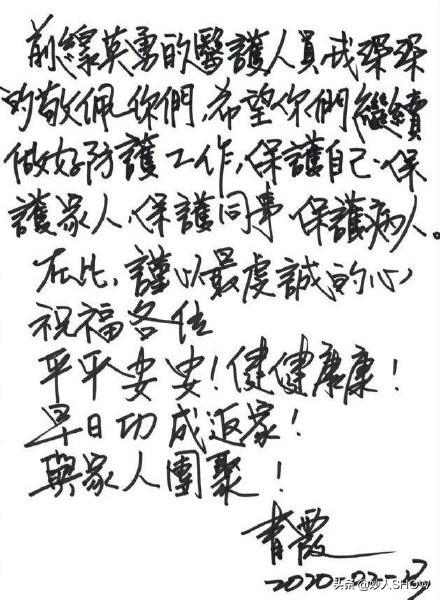 前線英勇的醫護人員,我深深
的敬佩你們,希望你們繼續
做好防護工作,保護自己、保
護家人、保護同事、保護病人。
在此,謹以最虔誠的心,
祝福各位
平平安安!健健康康!
早日功成返家!
與家人團聚!
青霞
2020-02-13
头条@妙人SHOW